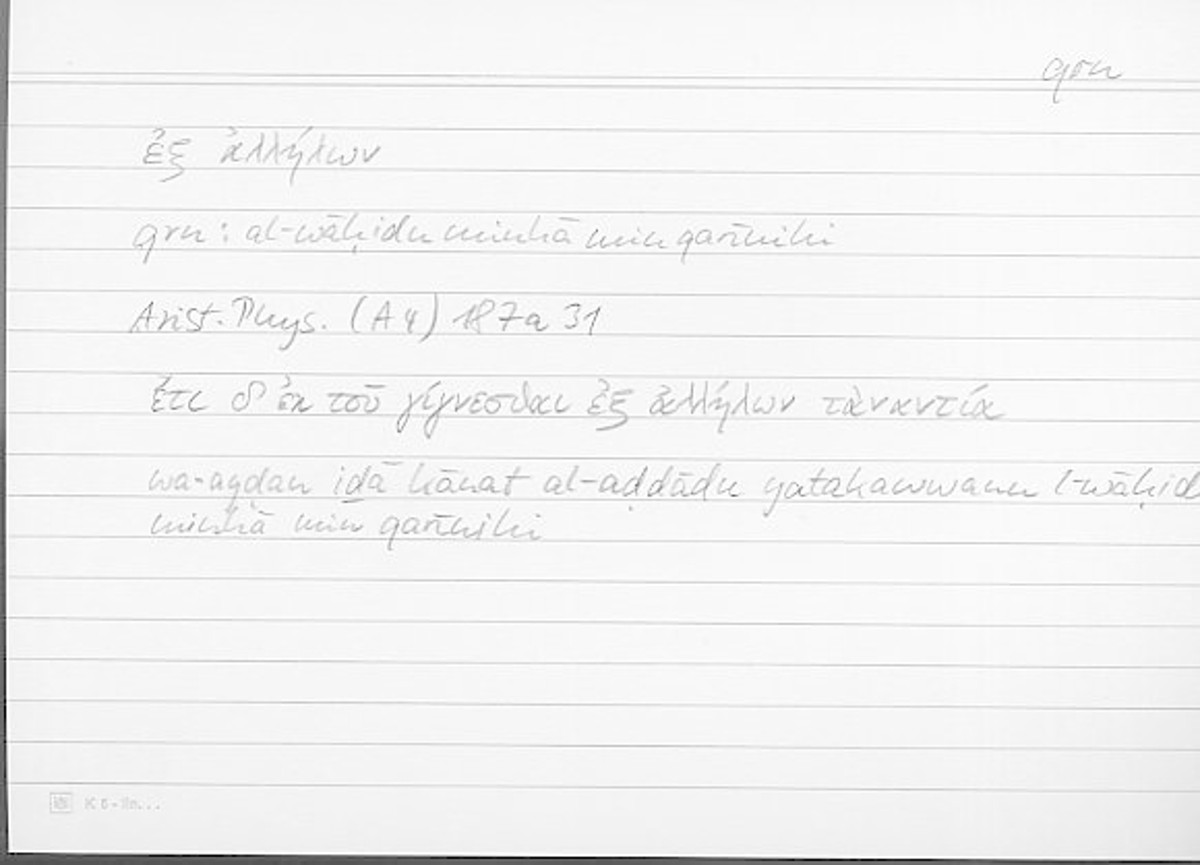 qrn
ἐξ ἀλλήλων
qrn : al-wāḥidu minhā min qarīnihī
Arist. Phys. (A 4) 187a 31
ἔτι δ' ἐκ τοῦ γίγνεσθαι ἐξ ἀλλήλων τἀναντία
wa-ayḍan iḏā kānat al-aḍdādu yatakawwanu l-wāḥid
minhā min qarīnihī